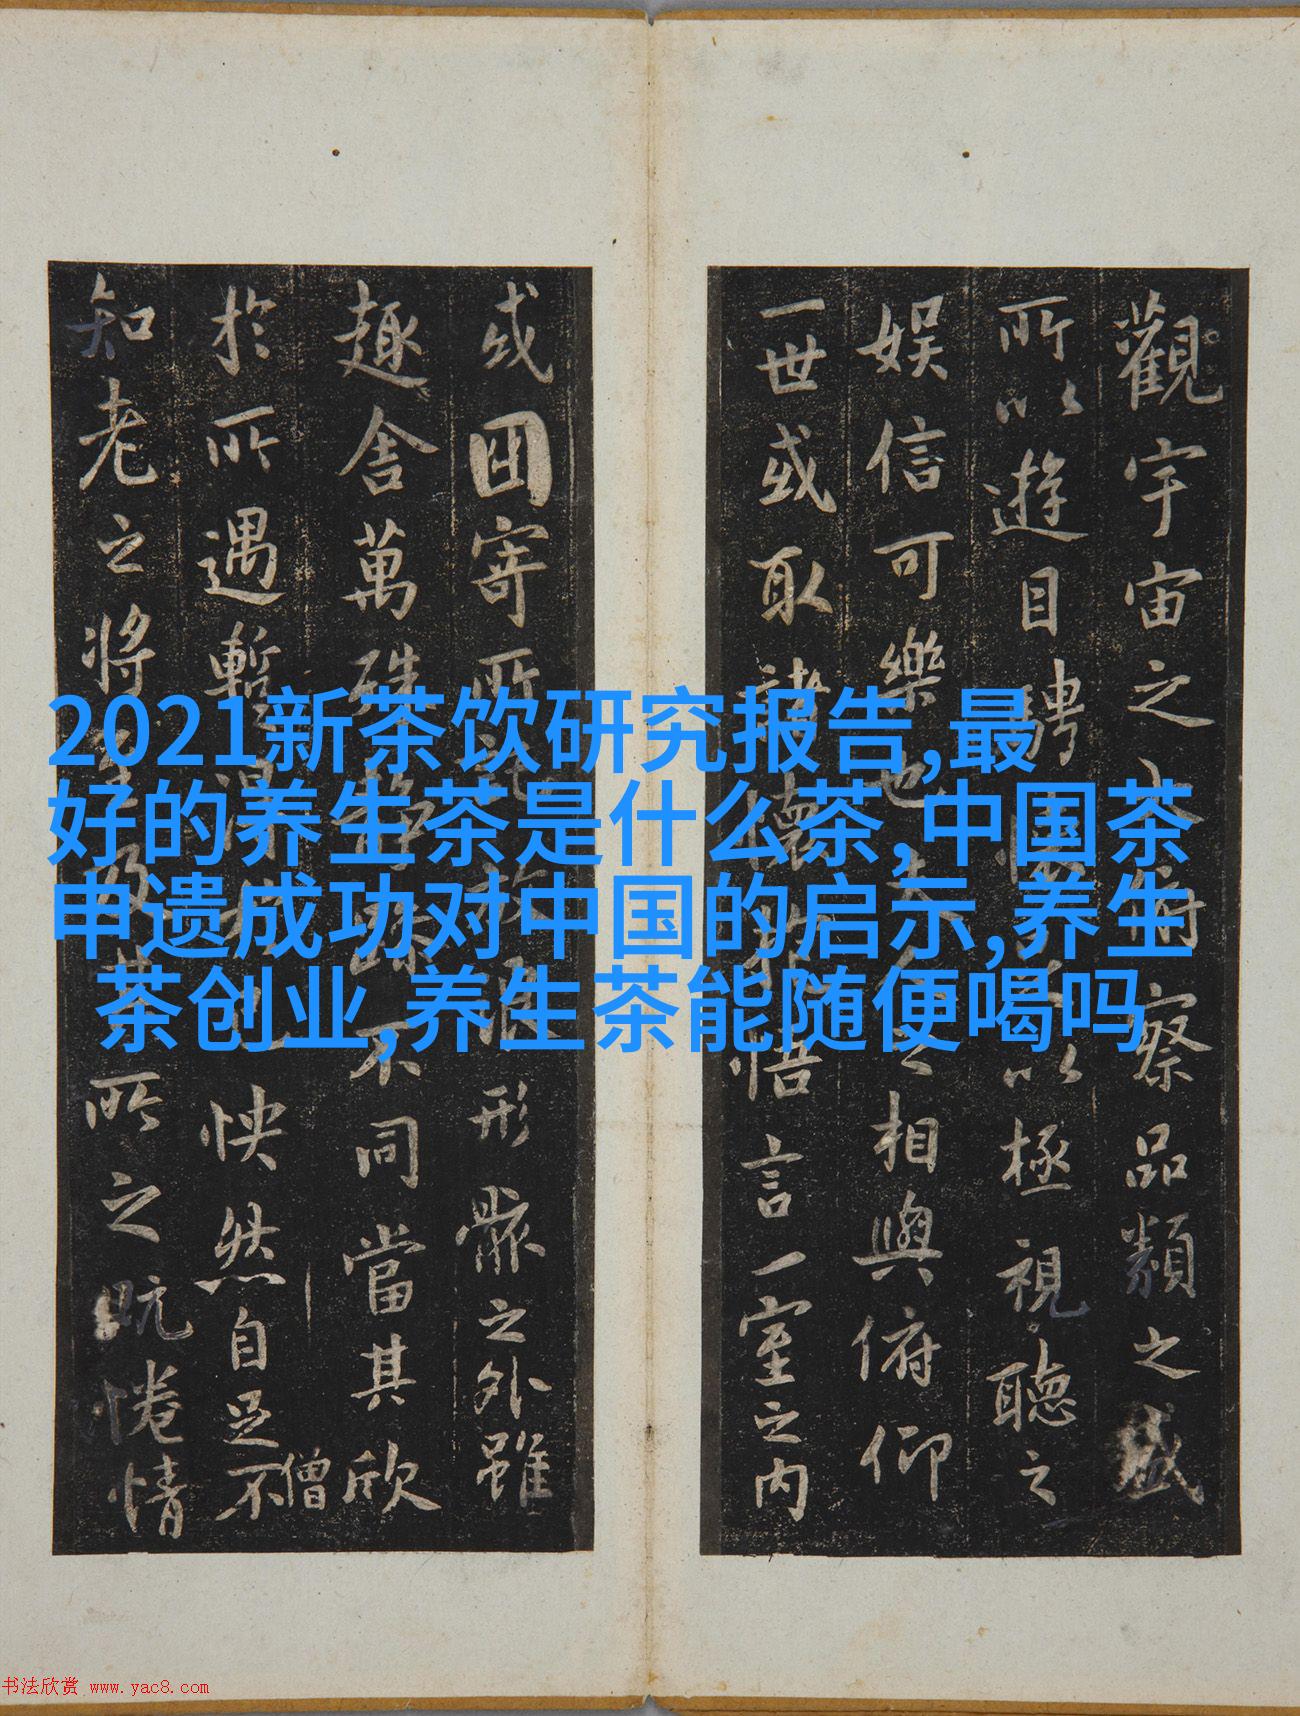 觀宇宙之大俯察品類之盛
所以遊目騁懷足以極視聽之
娛信可樂也夫人之相與俯仰
一世或取諸懷抱悟言一室之內
或因寄所託放浪形骸之外雖
趣舍萬殊靜躁不同當其欣
僧
於所遇暫得於己快然自足不
知老之將至及其所之既惓情
2021新茶饮研究报告,最
好的养生茶是什么茶,中国茶
申遗成功对中国的启示,养生
茶创业,养生茶能随便喝吗
书法欣赏 www.yac8.com